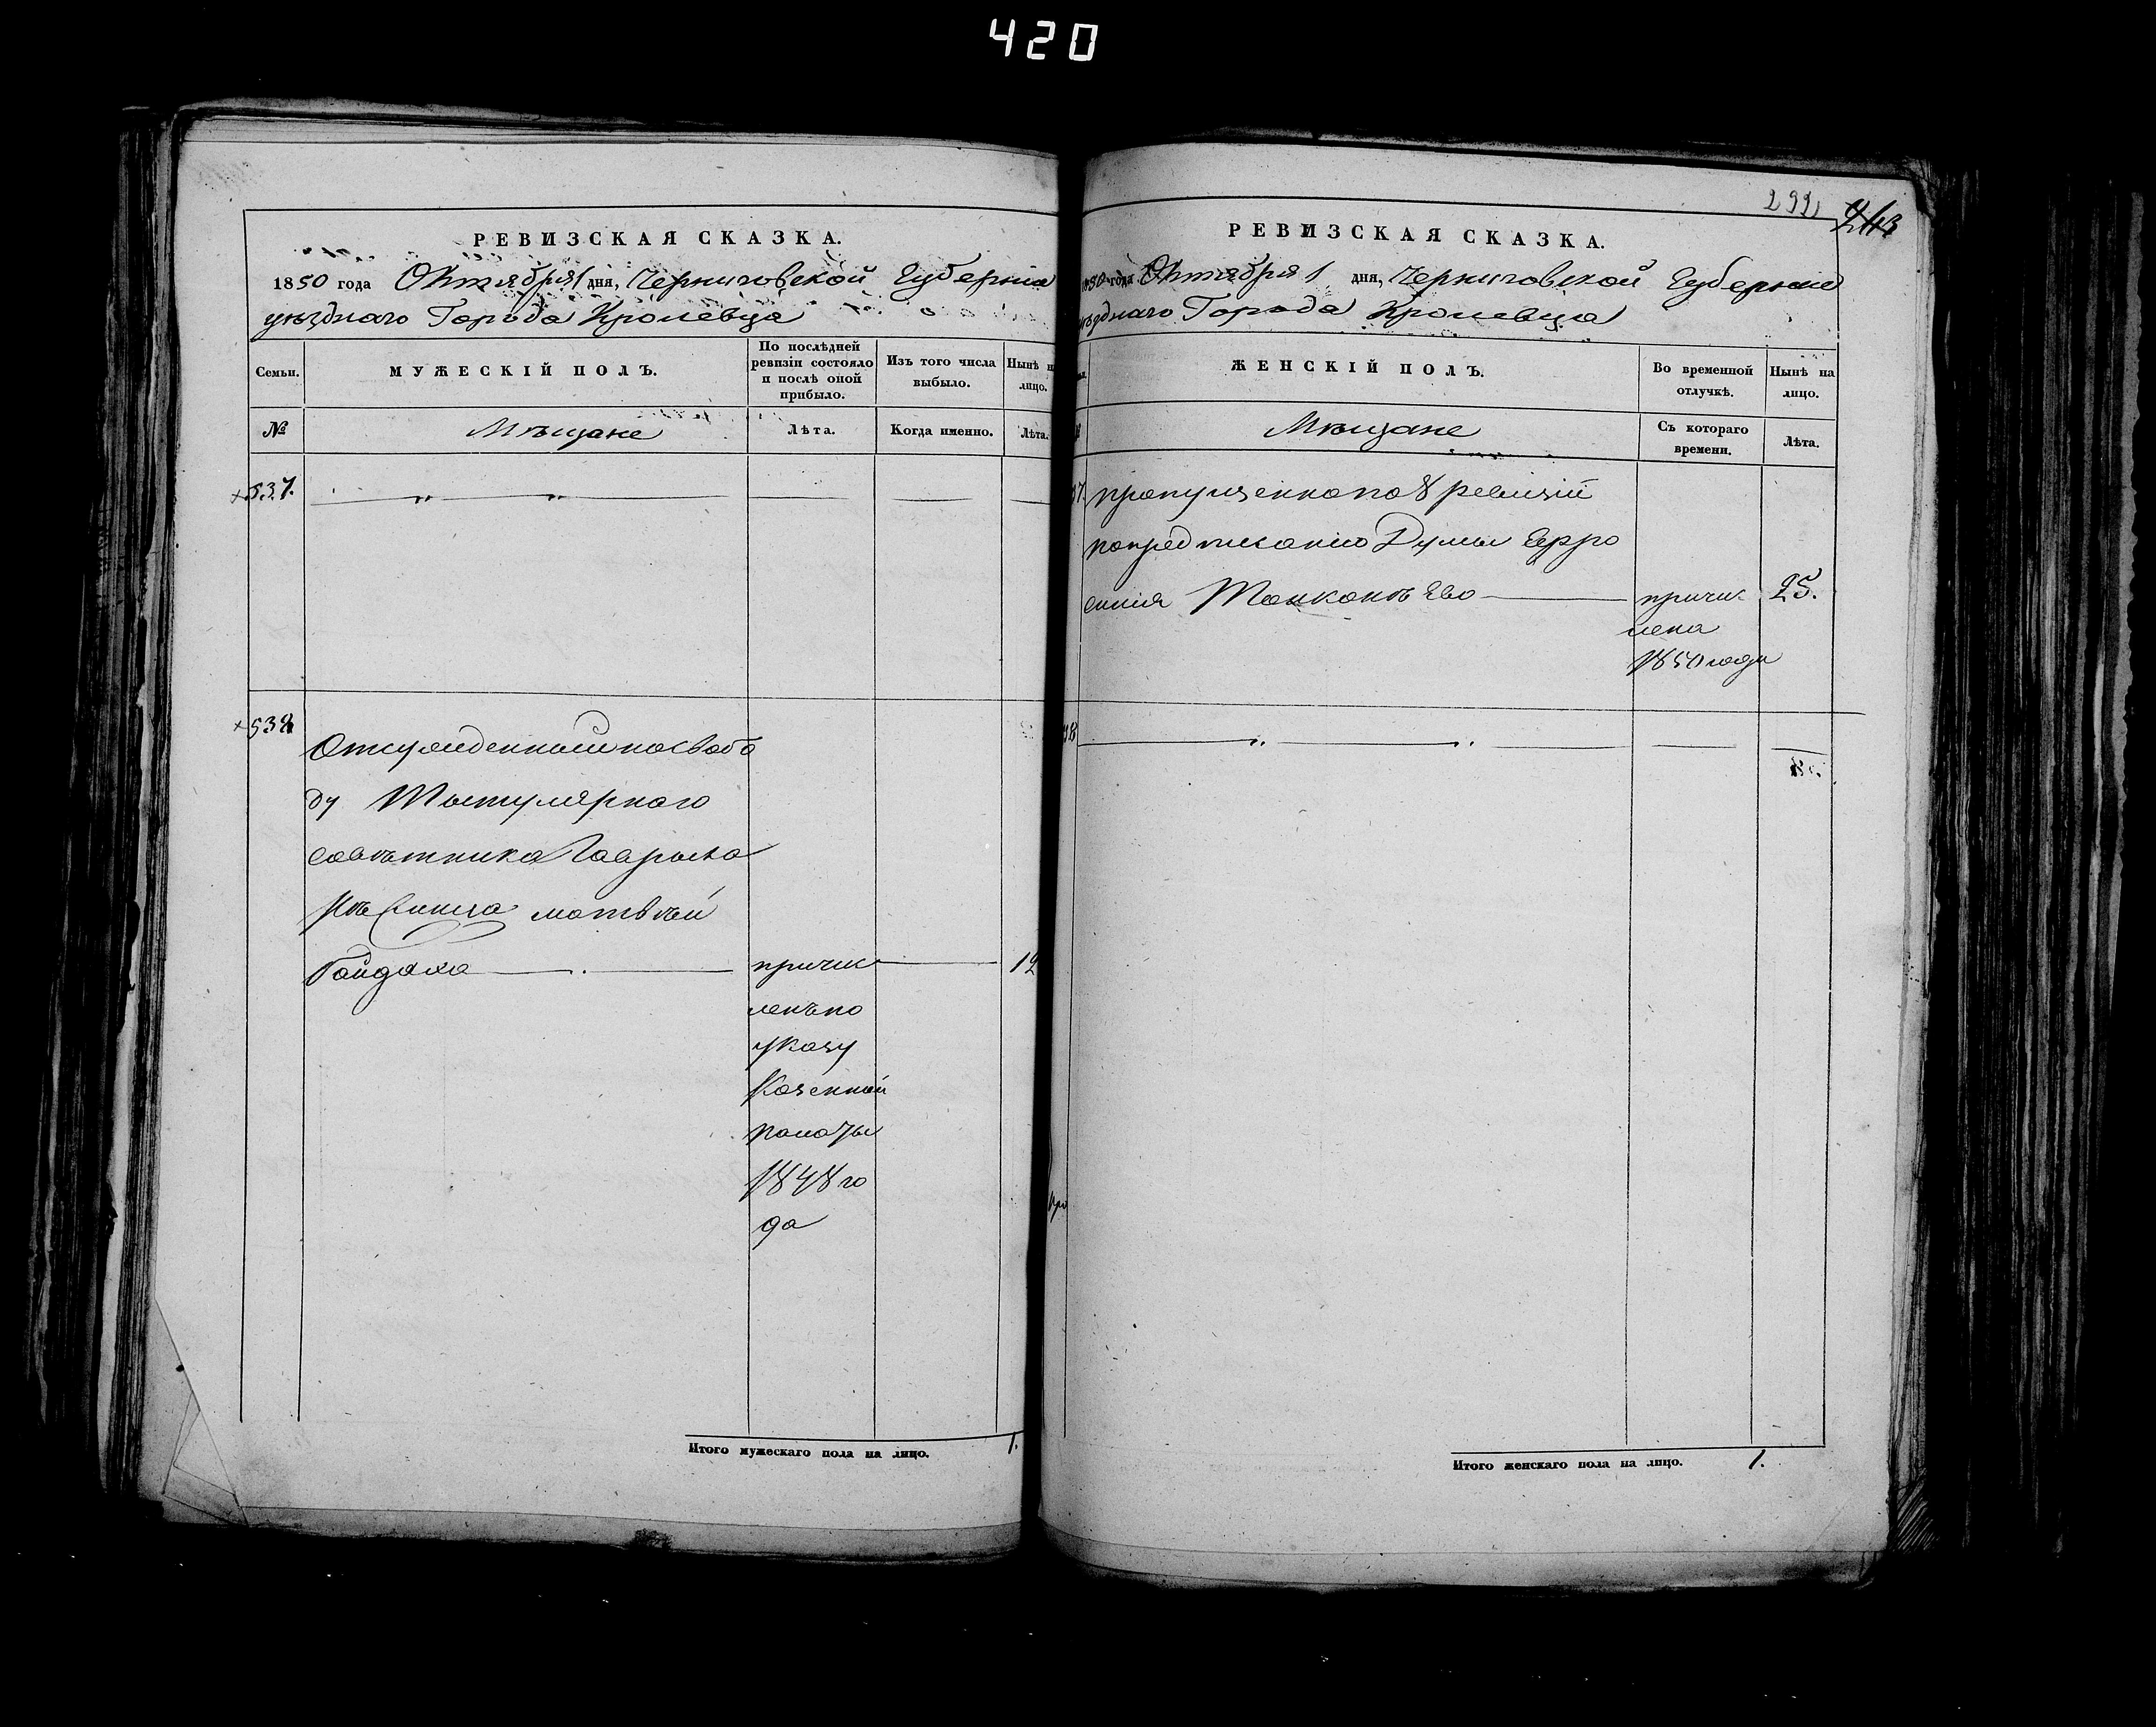 420
РЕВИЗСКАЯ СКАЗКА.
1850 года Октября 1 дня, Черниговской Губерніи
уѣзднаго Города Кролевца
Семьи.
МУЖЕСКІЙ ПОЛЪ.
По послѣдней
ревизіи состояло
и послѣ оной
прибыло.
Изъ того числа
выбыло.
Нынѣ н
лицо.
№
Мѣщане
Лѣта.
Когда именно.
Лѣта.
537.
538
Отсужденный на свобо
ду Тытулярного
совѣтника
Матвѣй
причис
12
ленъ по
указу
Казенной
Палаты
1848 го
да
Итого мужескаго пола на лицо. 1.
292
РЕВИЗСКАЯ СКАЗКА.
1850 года Октября 1 дня, Черниговской Губерніи
ѣзднаго Города Кролевца
ЖЕНСКІЙ ПОЛЪ.
Во временной
отлучкѣ.
Нынѣ на
лицо.
Мѣщане
Съ котораго
времени.
Лѣта.
37. пропущенна по 8 ревизіи
по предписанію Думы Ефро
синия причис 25.
лена
1850 года
38
Итого женскаго пола на лицо. 1.